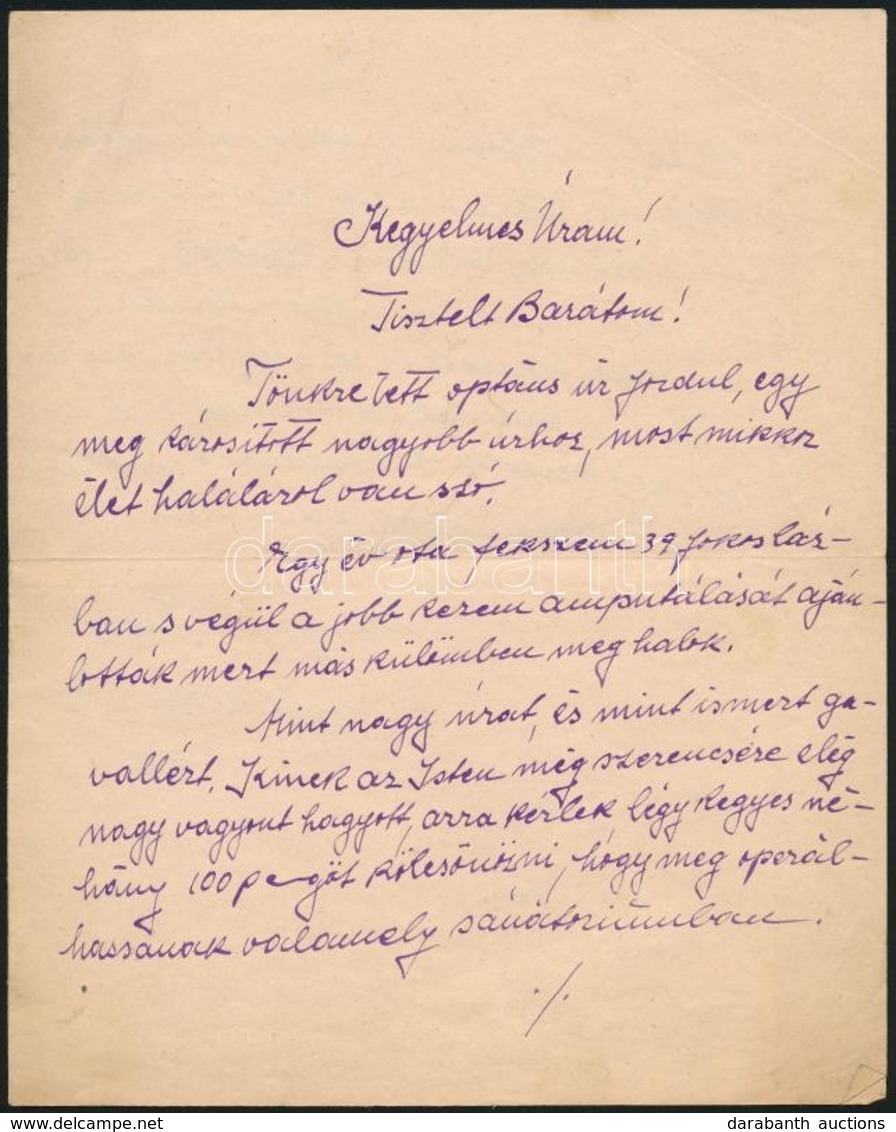 Kegyelmes Úram!
Tisztelt Barátom!
Tönkre tett optáns úr fordul, egy
meg károsított nagyobb úrhoz, most mikkor
élet haláláról van szó.
Egy év ota fekszem 39 fokos láz-
ban s végül a jobb kezem amputálását aján-
lották mert más külömben meg halok.
Mint nagy úrat, és mint ismert ga-
vallért. Kinek az Isten még szerencsére elég
nagy vagyont hagyott, arra kérlek légy kegyes né-
hány 100 pengőt kölcsönözni, hogy meg operál-
hassanak valamely sánátoriúmban.
./.
darabanth
darabanth auctions